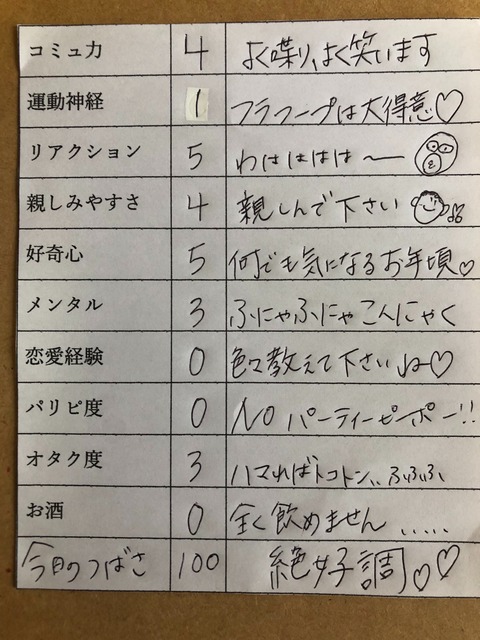 コミュ力 4 よく喋り、よく笑います
運動神経 1 フラフープは大得意♡
リアクション 5 わはははは〜
親しみやすさ 4 親しんで下さい
好奇心 5 何でも気になるお年頃♡
メンタル 3 ふにゃふにゃこんにゃく
恋愛経験 0 色々教えて下さいね♡
パリピ度 0 NO パーティーピーポー!!
オタク度 3 ハマればトコトン、、ふふふふ
お酒 0 全く飲めません .....
今日のつばさ 100 絶好調♡♡